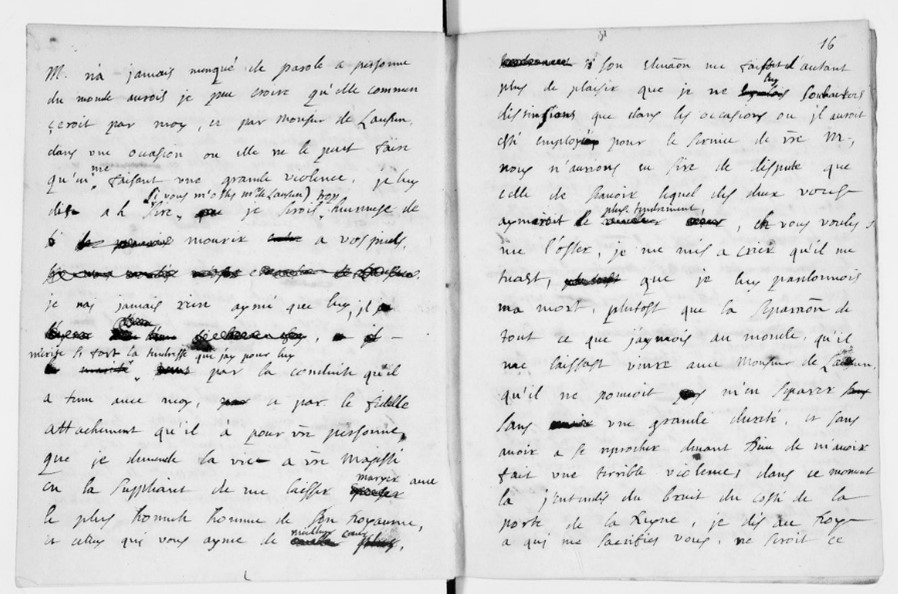 M. n'a jamais manqué de parole a personne
du monde aurois je peu croire qu'elle commen
ceroit par moy, et par Monsieur de Lausun,
dans une occasion ou elle ne le peut faire
qu'en me faisant une grande violence, je luy
dis a h Sire, si vous m'ostes Mr de Lausun) trop
je serois heureuse de
mourir a vos pieds,
je nai jamais rien aymé que luy, il
il
mérite si fort la tendresse que jay pour luy
par la conduite qu'il
a tenu avec moy, et par le fidelle
attachement qu'il à pour vre personne,
que je demande la vie a vre Majesté
en la suppliant de me laisser marier avec
le plus honneste homme de son Royaume,
et celuy qui vous ayme de meilleur coeur,
16
son me faisoit d'autant
plus de plaisir que je ne luy souhaitois
que dans les occasions ou il auroit
esté employé pour le service de vre M,
nous n'aurions eu Sire de dispute que
celle de scavoir lequel des deux vous
aymeroit le plus tendrement, et vous voules
me l'oster, je me mis a crier qu'il me
tuast, que je luy pardonnois
ma mort, plutost que la separaõn de
tout ce que j'aymois au monde, qu'il
me laissast vivre avec Monsieur de Lausun,
qu'il ne pouvoit m'en separer
sans une grande dureté, et sans
avoir a se reprocher devant Dieu de m'avoir
fait une terrible violence, dans ce moment
la j'entendis du bruit du costé de la
porte de la Reyne, je dis au Roy
a qui me sacrifies vous, ne seroit ce